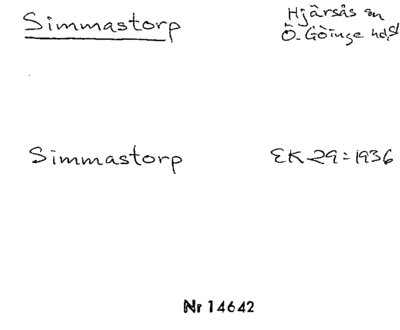 Simmastorp
Hjärsås sn
Ö. Göinge hd
Simmastorp
EK 29 : 1936
Nr 14642